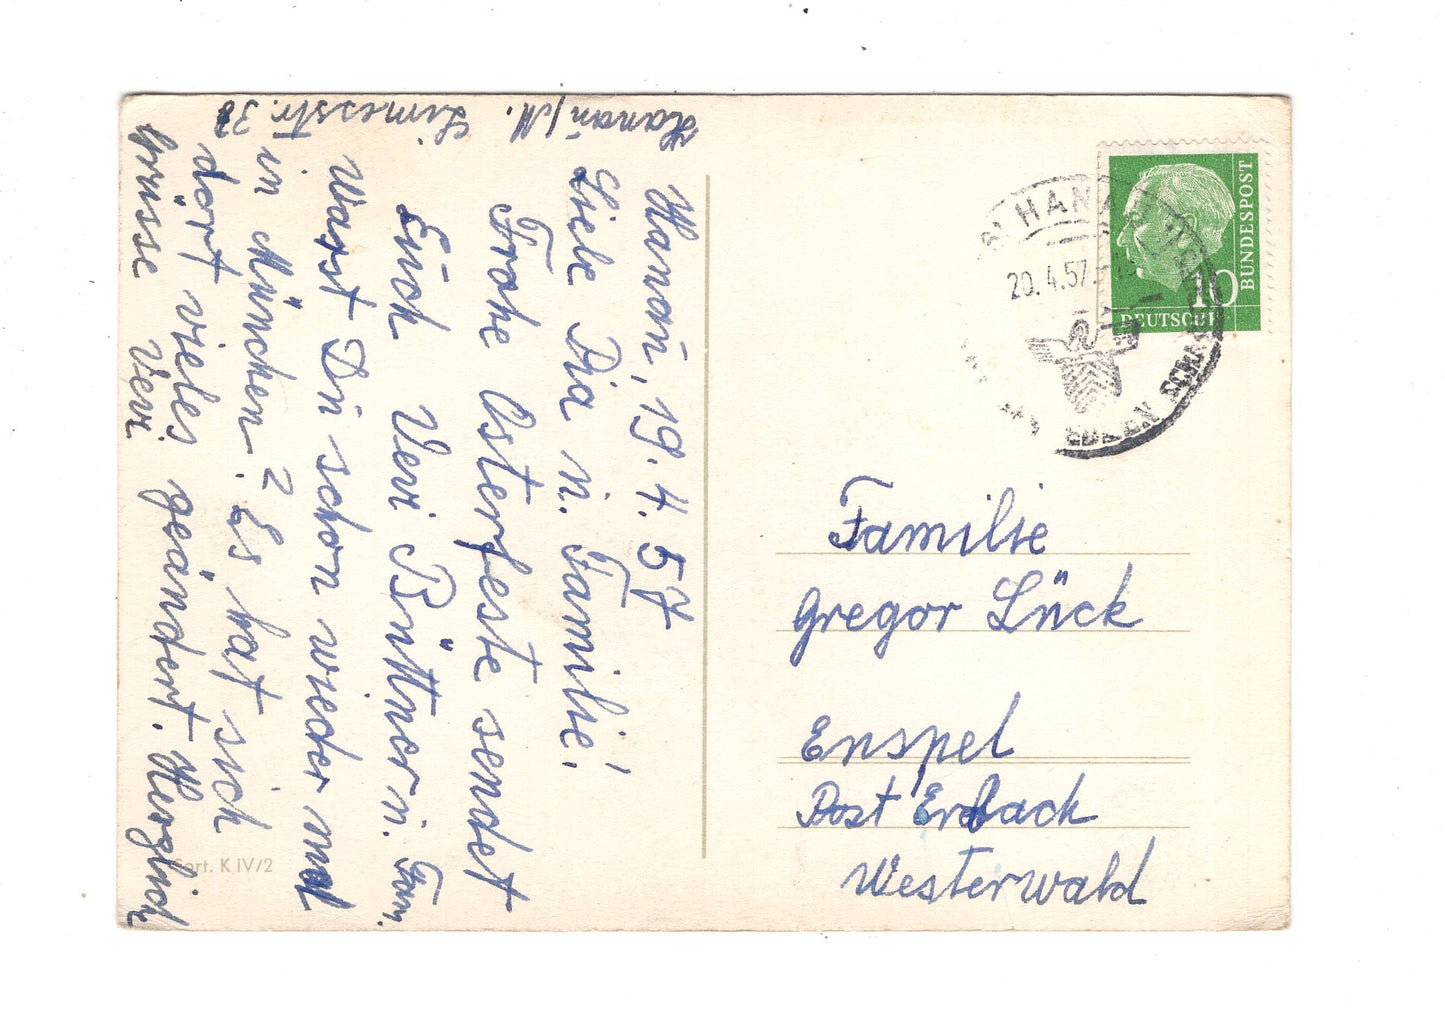 Hanau/M. Limesstr. 38
Hanau, 19. 4. 57
Liebe Pia u. Familie!
Frohe Osterfeste sendet
Euch Vevi Büttner u. Fam.
Warst Du schon wieder mal
in München? Es hat sich
dort vieles geändert. Herzliche
Grüsse Vevi
Sort. K IV/2
HANAU
20.4.57
DEUTSCHE
BUNDESPOST
10
Familie
Gregor Lück
Enspel
Post Erbach
Westerwald